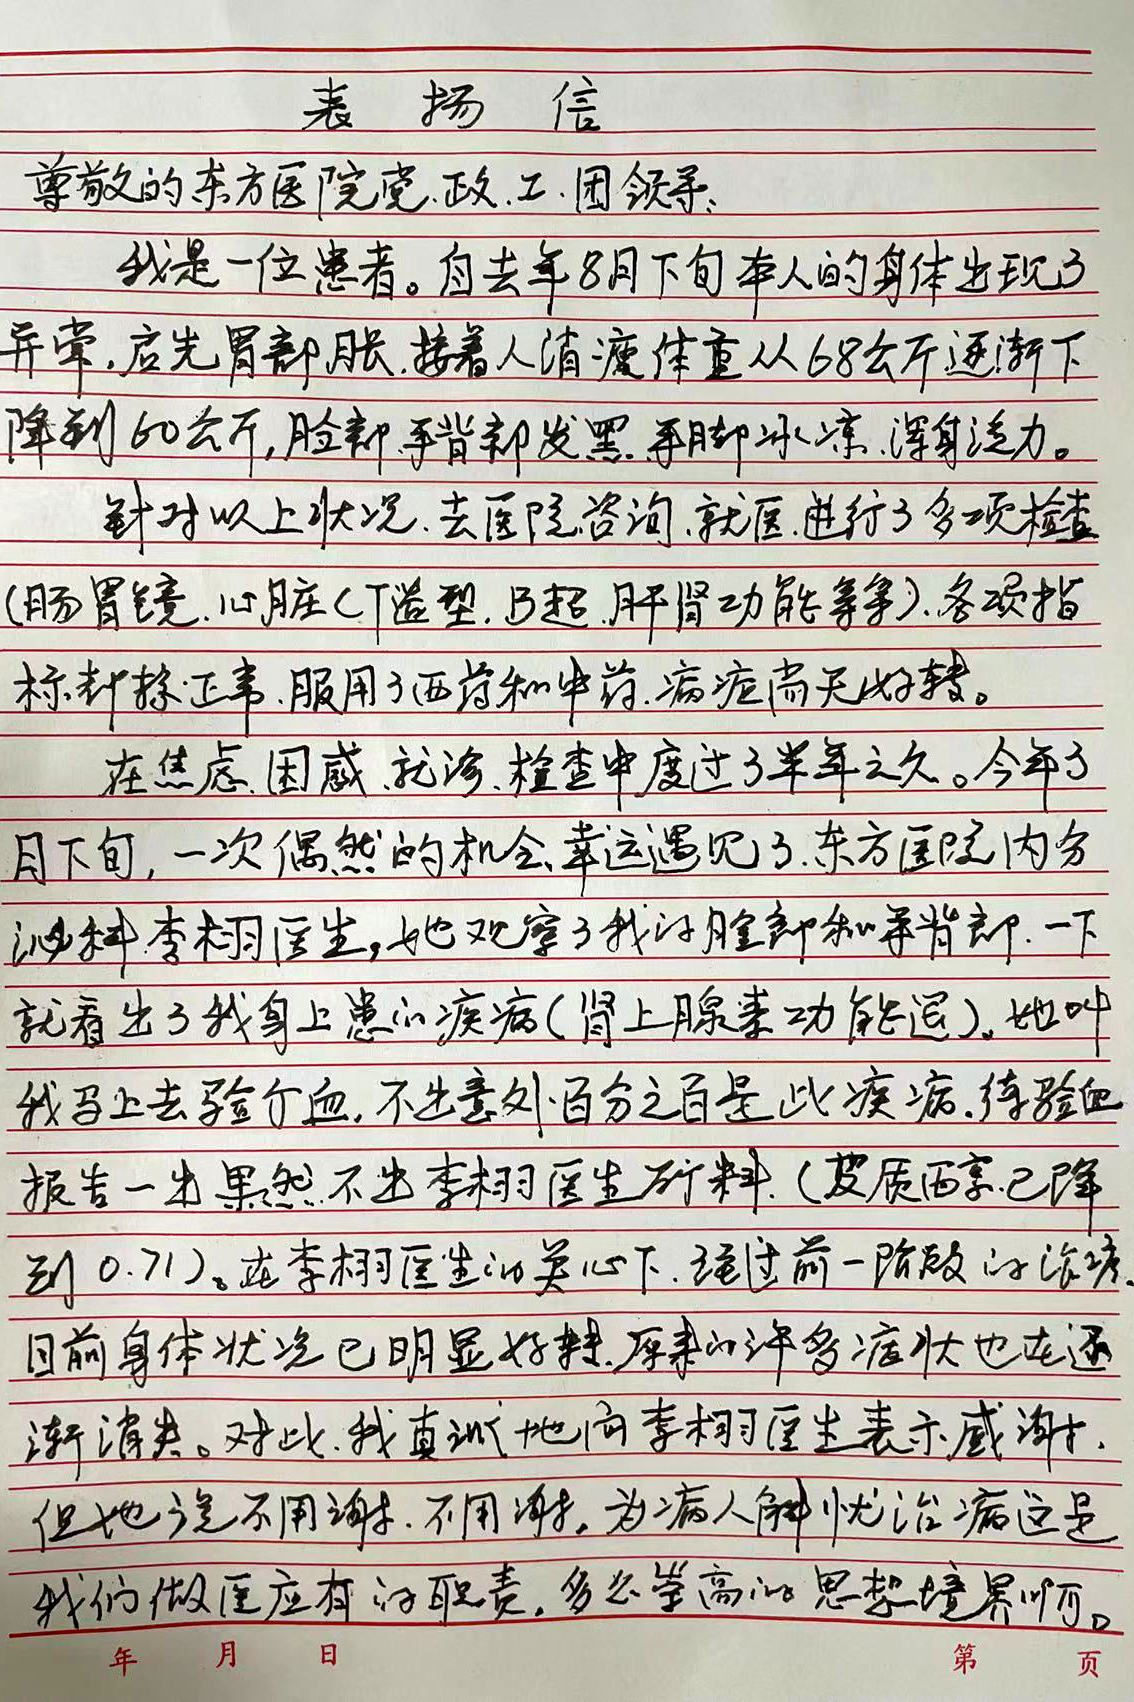 表扬信
尊敬的东方医院党、政、工、团领导:
我是一位患者。自去年8月下旬本人的身体出现了
异常,启先胃部胀、接着人消瘦体重从68公斤逐渐下
降到60公斤,脸部、手背部发黑、手脚冰凉、浑身泛力。
针对以上状况、去医院咨询、就医、进行了多项检查
(肠胃镜、心脏CT造型、B超、肝肾功能等等)、各项指
标都挺正常、服用了西药和中药、病症尚无好转。
在焦虑、困惑、就诊、检查中度过了半年之久。今年3
月下旬,一次偶然的机会、幸运遇见了、东方医院内分
泌科李栩医生,她观察了我的脸部和手背部、一下
就看出了我身上患的疾病(肾上腺素功能退)。她叫
我马上去验个血,不出意外百分之百是此疾病、待验血
报告一出果然、不出李栩医生所料、(皮质西享、已降
到0.71)。在李栩医生的关心下、经过前一阶段的治疗、
目前身体状况已明显好转、原来的许多症状也在逐
渐消失。对此、我真诚地向李栩医生表示感谢、
但她说不用谢、不用谢,为病人解忧治病这是
我们做医应有的职责,多么崇高的思想境界啊。
年 月 日 第 页